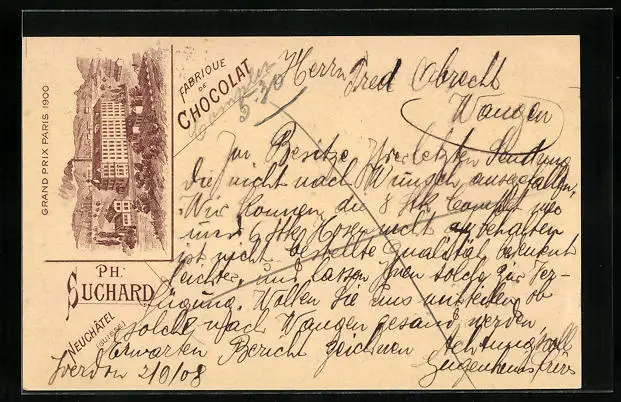 GRAND PRIX PARIS 1900
FABRIQUE
DE
CHOCOLAT
PH. SUCHARD
NEUCHÂTEL
(SUISSE)
5.30
Herrn Fred Obrecht
Wangen
Im Besitze Ihrer letzten Sendung
die nicht nach Wunsch ausgefallen.
Wir können die 8
und 6 Hosen nicht behalten
ist nicht bestellte Qualität, bedeutend
leichter, und lassen Ihnen solche zur Ver-
fügung. Wollen Sie uns mitteilen ob
solche nach Wangen gesandt werden,
erwarten Bericht zeichnen Achtungsvoll
Yverdon 2/9/08 Guggenheim frères